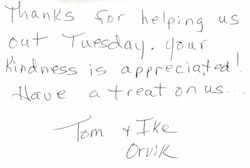 Thanks for helping us
out Tuesday. Your
kindness is appreciated!
Have a treat on us...
Tom + Ike
Orvik